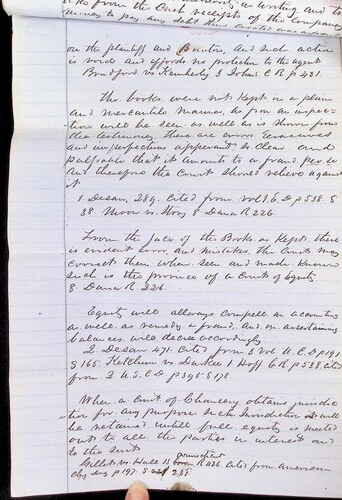 from the Cash receipts of the Company
money to pay any debt thus created was a
on the plaintiff and Pointer, and such action
is void and affords no protection to the agent
Bradford vs Kimberly 3 Johns C R p 431.
The books were not kept in a plain
and mercantile manner, as from an inspec-
tion will be seen as well as is shown from
the testimony there are errors Erasures
and imperfections apparent so clear and
palpable that it amounts to a fraud per se
And therefore the Court should relieve against
it
1 Desau 289. Cited from vol 1 E. D p 538. §
38 Moor vs Story 8 Dana R 226.
From the face of the Books as kept, there
is evident error, and mistakes. The Courts may
correct them when seen and made known
such is the province of a Court of Equity
8 Dana R 226.
Equity will allways compell an accounting
as well, as remedy a fraud, and on ascertaining
balances will decree accordingly
2 Desau 471. Cited from 3 Vol U. C. D p 191
§ 165. Ketchum vs Durkee 1 Hoff C R p 538. cited
from 2 U.S. C D p 395 § 178
When a Court of Chancery obtains jurisdic-
tion for any purpose such Jurisdiction will
be retained untill full equity is meted
out to all the parties in interest and
to the suit
Connecticut
Gillett vs Hall 13 R 426 cited from American
Chy Dig p 197. § 235.